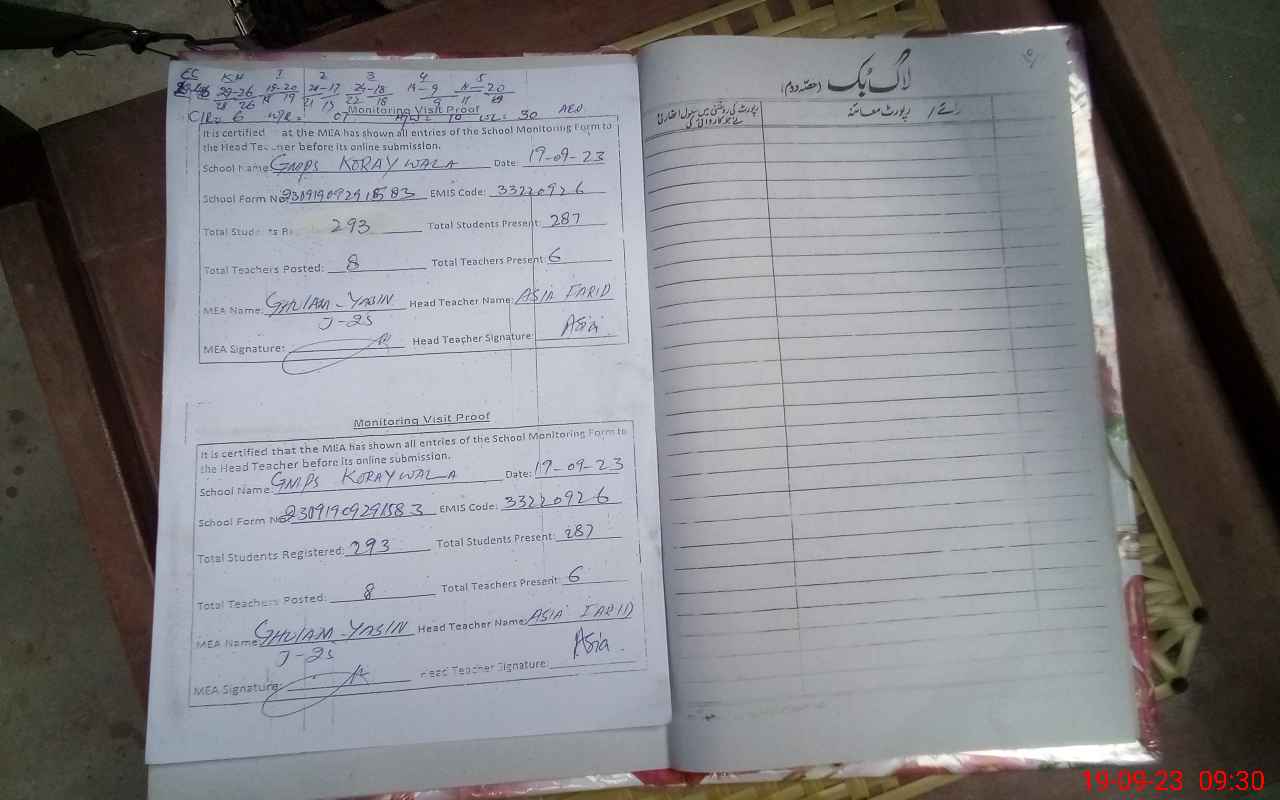 KH 1 2 3 4 5
29-26 24-18 14-9
28 26 14 19 21 15 22 18 9
C/R= 6 07 10 30
Monitoring Visit Proof
It is certified at the MEA has shown all entries of the School Monitoring Form to
the Head Teacher before its online submission.
School Name: GNIPS KORAY WALA Date: 19-09-23
School Form No 23091909291583 EMIS Code: 33220926
Total Students Re 293 Total Students Present: 287
Total Teachers Posted: 8 Total Teachers Present: 6
MEA Name: GHULAM-YASIN Head Teacher Name: ASIA FARID
J-25
MEA Signature: Head Teacher Signature: Asia
Monitoring Visit Proof
It is certified that the MEA has shown all entries of the School Monitoring Form to
the Head Teacher before its online submission.
School Name: GNIPS KORAYWALA Date: 19-09-23
School Form No 23091909291583 EMIS Code: 33220926
Total Students Registered: 293 Total Students Present: 287
Total Teachers Posted: 8 Total Teachers Present: 6
MEA Name: GHULAM-YASIN Head Teacher Name: ASIA FARID
J-25
MEA Signature: Head Teacher Signature: Asia
لاگ بک (حصہ دوم)
رائے / رپورٹ معائنہ
رپورٹ کی روشنی میں سکول اتھارٹی
نے جو کارروائی کی
19-09-23 09:30